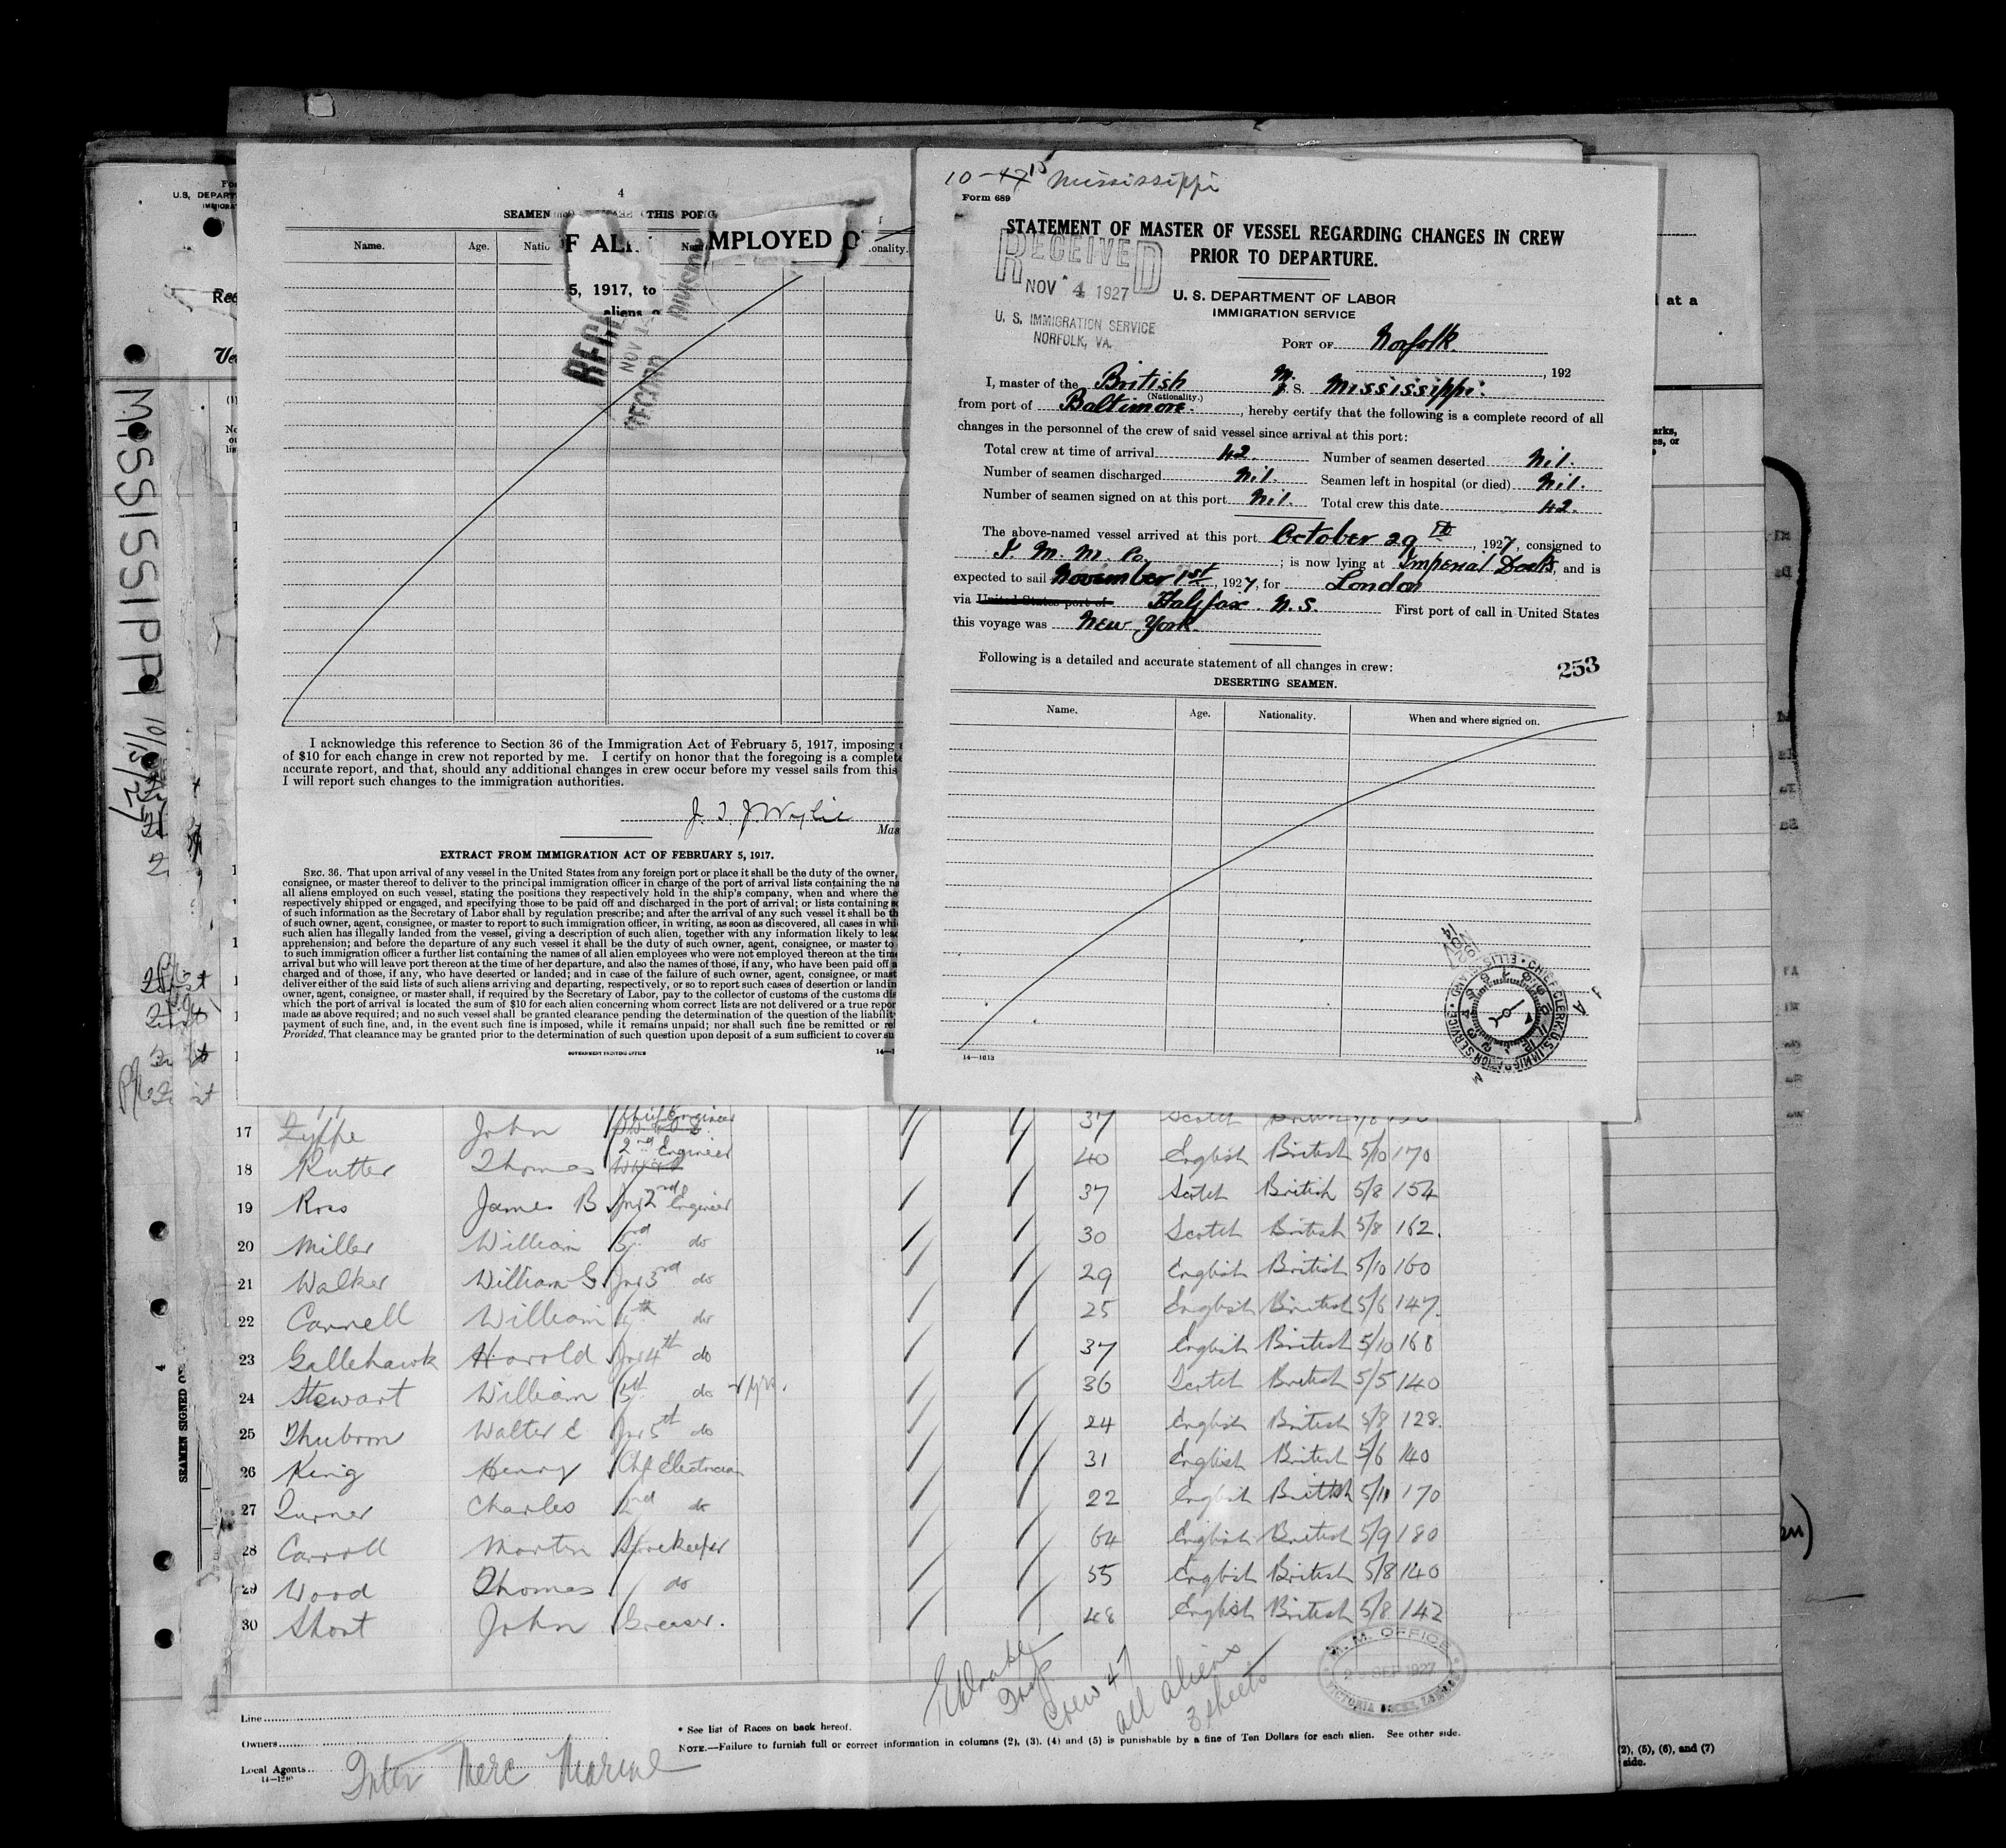 4
SEAMEN THIS PORT
Name. Age.
F ALI MPLOYED O
onality.
5, 1917, to
aliens
DIVISION
NOV 14
RECORD
I acknowledge this reference to Section 36 of the Immigration Act of February 5, 1917, imposing
of $10 for each change in crew not reported by me. I certify on honor that the foregoing is a complete
accurate report, and that, should any additional changes in crew occur before my vessel sails from this
I will report such changes to the immigration authorities.
J. T. J. Wylie
Mas
EXTRACT FROM IMMIGRATION ACT OF FEBRUARY 5, 1917.
SEC. 36. That upon arrival of any vessel in the United States from any foreign port or place it shall be the duty of the owner,
consignee, or master thereof to deliver to the principal immigration officer in charge of the port of arrival lists containing the na
all aliens employed on such vessel, stating the positions they respectively hold in the ship's company, when and where the
respectively shipped or engaged, and specifying those to be paid off and discharged in the port of arrival; or lists containing so
of such information as the Secretary of Labor shall by regulation prescribe; and after the arrival of any such vessel it shall be th
of such owner, agent, consignee, or master to report to such immigration officer, in writing, as soon as discovered, all cases in whi
such alien has illegally landed from the vessel, giving a description of such alien, together with any information likely to lead
apprehension; and before the departure of any such vessel it shall be the duty of such owner, agent, consignee, or master to
to such immigration officer a further list containing the names of all alien employees who were not employed thereon at the time
arrival but who will leave port thereon at the time of her departure, and also the names of those, if any, who have been paid off a
charged and of those, if any, who have deserted or landed; and in case of the failure of such owner, agent, consignee, or mast
deliver either of the said lists of such aliens arriving and departing, respectively, or so to report such cases of desertion or landin
owner, agent, consignee, or master shall, if required by the Secretary of Labor, pay to the collector of customs of the customs dis
which the port of arrival is located the sum of $10 for each alien concerning whom correct lists are not delivered or a true repor
made as above required; and no such vessel shall be granted clearance pending the determination of the question of the liability
payment of such fine, and, in the event such fine is imposed, while it remains unpaid; nor shall such fine be remitted or re
Provided, That clearance may be granted prior to the determination of such question upon deposit of a sum sufficient to cover su
GOVERNMENT PRINTING OFFICE
10-15 Mississippi
Form 689
STATEMENT OF MASTER OF VESSEL REGARDING CHANGES IN CREW
PRIOR TO DEPARTURE.
RECEIVED
NOV 4 1927
U. S. IMMIGRATION SERVICE
NORFOLK, VA.
U. S. DEPARTMENT OF LABOR
IMMIGRATION SERVICE
PORT OF Norfolk.
, 192
I, master of the British M. S. Mississippi.
(Nationality.)
from port of Baltimore. , hereby certify that the following is a complete record of all
changes in the personnel of the crew of said vessel since arrival at this port:
Total crew at time of arrival 42. Number of seamen deserted Nil.
Number of seamen discharged Nil. Seamen left in hospital (or died) Nil.
Number of seamen signed on at this port Nil. Total crew this date 42.
The above-named vessel arrived at this port October 29th, 1927, consigned to
I. M. M. Co. ; is now lying at Imperial Docks, and is
expected to sail November 1st, 1927, for London
via United States port of Halifax N.S. First port of call in United States
this voyage was New York.
Following is a detailed and accurate statement of all changes in crew:
253
DESERTING SEAMEN.
Name. Age. Nationality. When and where signed on.
14—1613
U.S. IMMIGRATION SERVICE
CHIEF CLERK
MISSISSIPPI 10/15/27
SEAMEN SIGNED ON
17 Fyffe John Chief Engineer 37 Scotch
18 Rutter Thomas 2nd Engineer 40 English British 5/10 170
19 Ross James B Jnr 2nd Engineer 37 Scotch British 5/8 154
20 Miller William 3rd do 30 Scotch British 5/8 162.
21 Walker William G Jnr 3rd do 29 English British 5/10 160
22 Cannell William 4th do 25 English British 5/6 147.
23 Gallehawk Harold Jnr 4th do 37 English British 5/10 168
24 Stewart William 5th do 36 Scotch British 5/5 140
25 Thubron Walter E Jnr 5th do 24 English British 5/8 128.
26 King Henry Chf Electrician 31 English British 5/6 140
27 Turner Charles 2nd do 22 English British 5/11 170
28 Carroll Martin Storekeeper 64 English British 5/9 180
29 Wood Thomas do 55 English British 5/8 140
30 Short John Greaser. 48 English British 5/8 142
Crew 47
all aliens
3 sheets
M. M. OFFICE
1927
VICTORIA DOCKS, LONDON
Line
Owners
Local Agents Inter Merc Marine
14—1240
* See list of Races on back hereof.
NOTE.—Failure to furnish full or correct information in columns (2), (3), (4) and (5) is punishable by a fine of Ten Dollars for each alien. See other side.
(2), (5), (6), and (7)
side.
at a